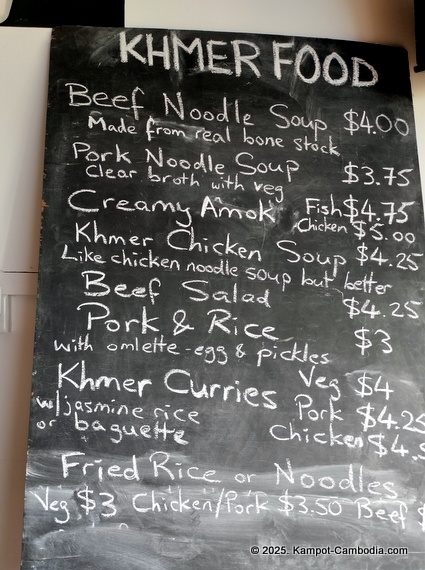 KHMER FOOD
Beef Noodle Soup $4.00
Made from real bone stock
Pork Noodle Soup $3.75
Clear broth with veg
Creamy Amok Fish $4.75
Chicken $5.00
Khmer Chicken Soup $4.25
Like chicken noodle soup but better
Beef Salad $4.25
Pork & Rice $3
with omlette-egg & pickles
Khmer Curries Veg $4
w/jasmine rice Pork $4.25
or baguette Chicken $4.5
Fried Rice or Noodles
Veg $3 Chicken/Pork $3.50 Beef $
© 2025. Kampot-Cambodia.com